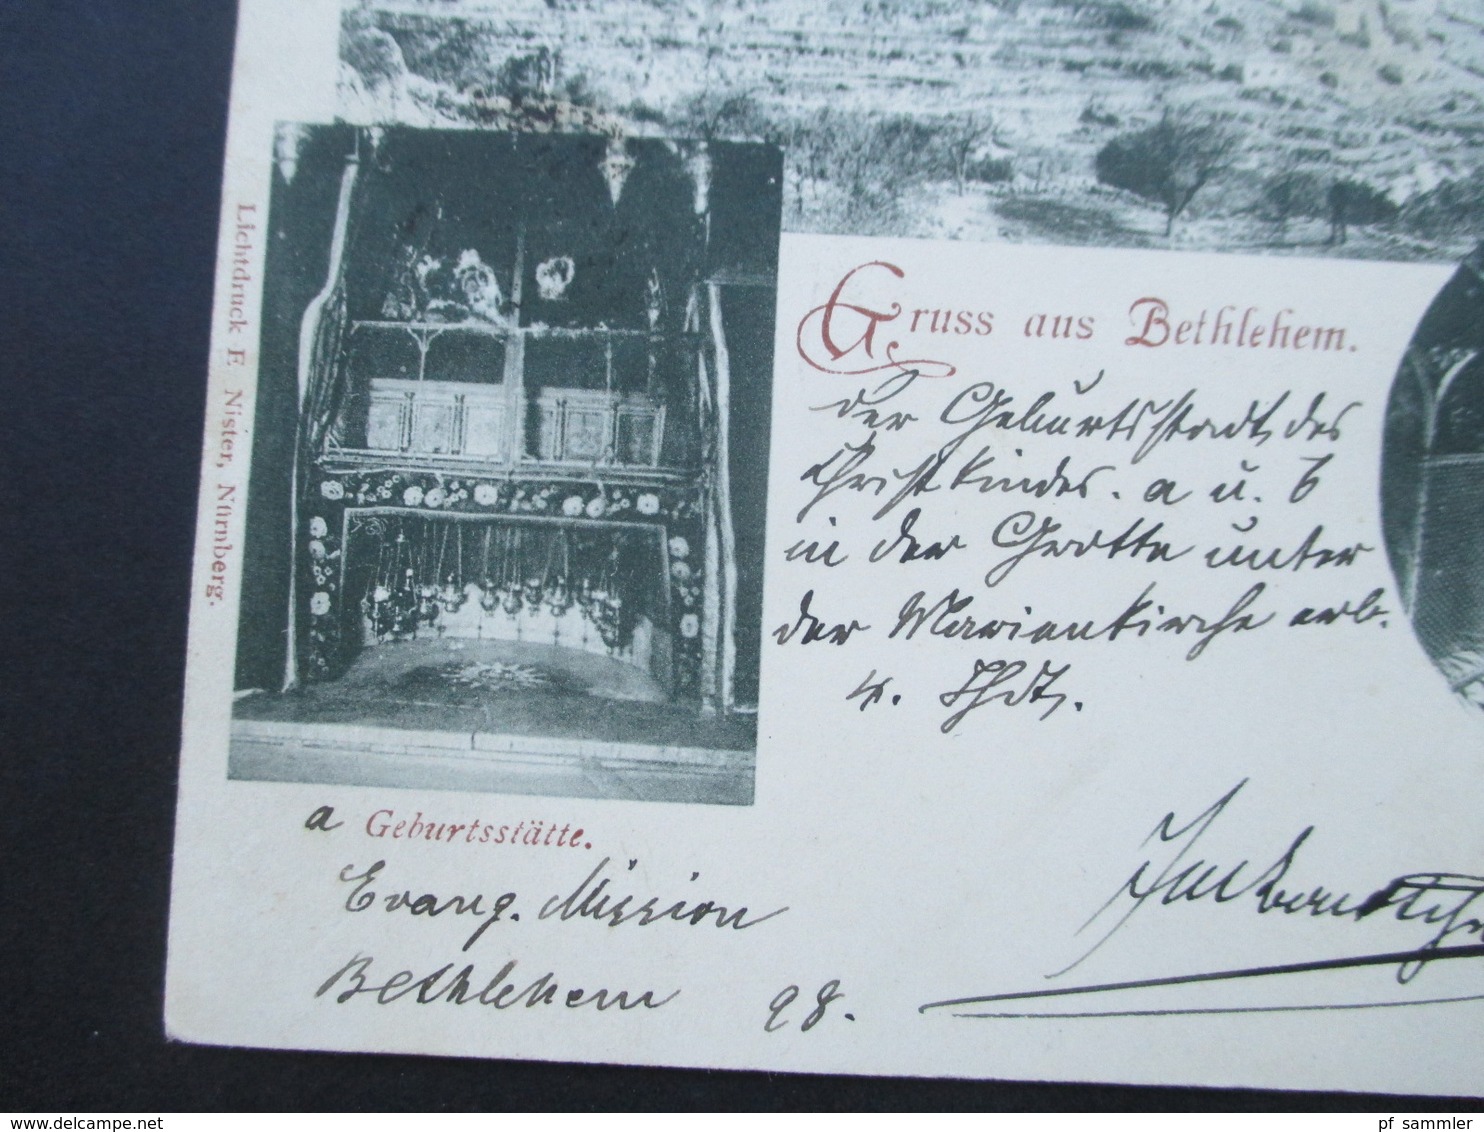 Gruss aus Bethlehem.
der Geburtsstadt des
Christkindes. a u. b
in der Grotte unter
der Marienkirche erb.
v.
Lichtdruck E Nister, Nürnberg.
a Geburtsstätte.
Evang. Mission
Bethlehem 98.
pf_sammler